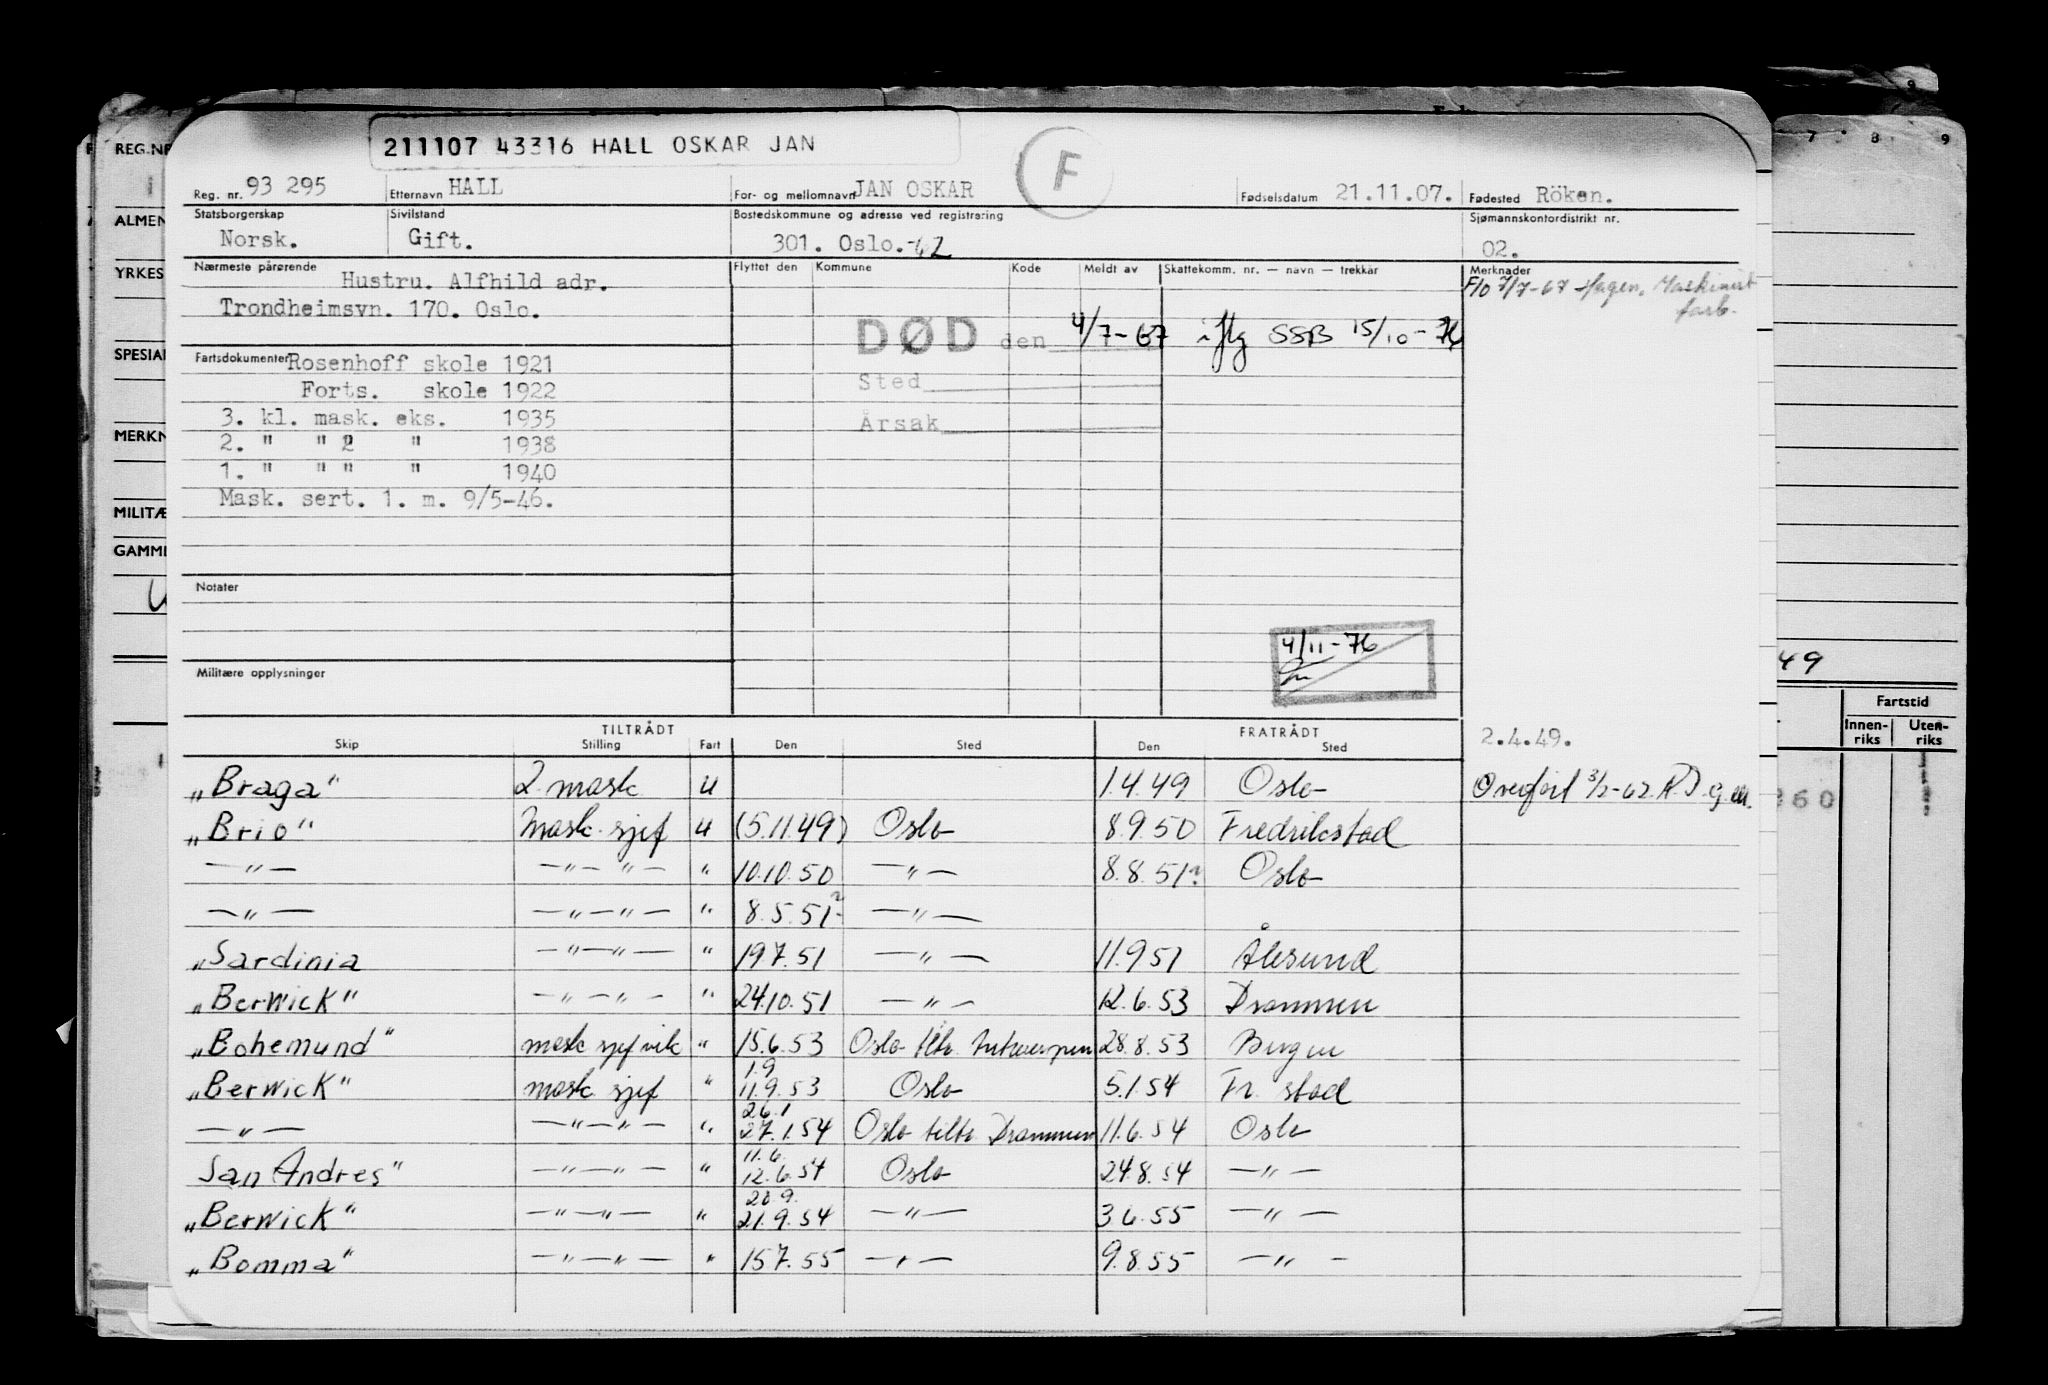 211107 43316 HALL OSKAR JAN
F
Reg. nr. 93 295 Etternavn HALL For- og mellomnavn JAN OSKAR Fødselsdatum 21.11.07. Fødested Röken.
Statsborgerskap Sivilstand Bostedskommune og adresse ved registrering Sjømannskontordistrikt nr.
Norsk. Gift. 301. Oslo.-62 02.
Nærmeste pårørende Flyttet den Kommune Kode Meldt av Skattekomm. nr. — navn — trekkar Merknader
Hustru. Alfhild adr. F/o 7/7-67 Hagen, Maskinist
Trondheimsvn. 170. Oslo. forb.
DØD den 4/7-67 iflg SSB 15/10-76
Fartsdokumenter Rosenhoff skole 1921
Sted
Forts. skole 1922
3. kl. mask. eks. 1935
Årsak
2. " " 2 " 1938
1. " " " " 1940
Mask. sert. 1. m. 9/5-46.
Notater
4/11-76
Militære opplysninger
TILTRÅDT FRATRÅDT
Skip Stilling Fart Den Sted Den Sted 2.4.49.
„Braga" 2 mask u 1.4.49 Oslo Overført 3/2-62
„Brio" Mask. sjef u (5.11.49) Oslo 8.9.50 Fredrikstad
—"— —"—"— " 10.10.50 —"— 8.8.51? Oslo
—"— —"—"— " 8.5.51? —"—
„Sardinia —"—"— " 19.7.51 —"— 11.9.51 Ålesund
„Berwick" —"—"— " 24.10.51 —"— 12.6.53 Drammen
„Bohemund" mask sjef vik " 15.6.53 Oslo tiltr. Antwerpen 28.8.53 Bergen
1.9
„Berwick" mask sjef " 11.9.53 Oslo 5.1.54 Fr. stad
26.1
—"— —"—"— " 27.1.54 Oslo tiltr. Drammen 11.6.54 Oslo
11.6.
San Andres" —"—"— " 12.6.54 Oslo 24.8.54 —"—
20.9.
„Berwick" —"—"— " 21.9.54 —"— 3.6.55 —"—
„Bomma" —"—"— " 15.7.55 —"— 9.8.55 —"—
REG.NR
ALMEN
YRKES
SPESIAL
MERKN
MILITÆ
GAMML
7 8 9
49
Fartstid
Innen-
riks
Uten-
riks
360